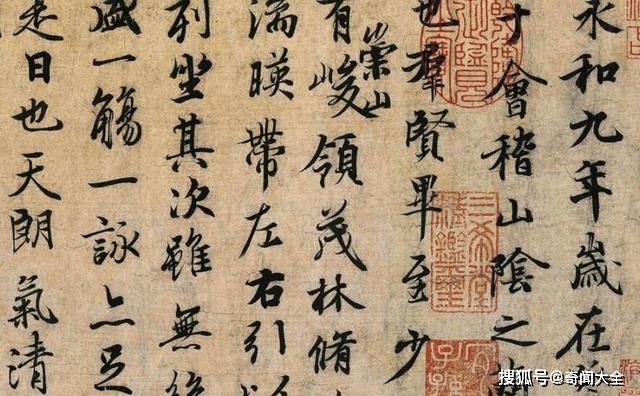 永和九年歲在癸
于會稽山陰之蘭
也羣賢畢至少
有崇山峻領茂林脩
湍暎帶左右引以
列坐其次雖無絲
盛一觴一詠亦足
是日也天朗氣清
三希堂
精鑑璽
搜狐号@奇闻大全